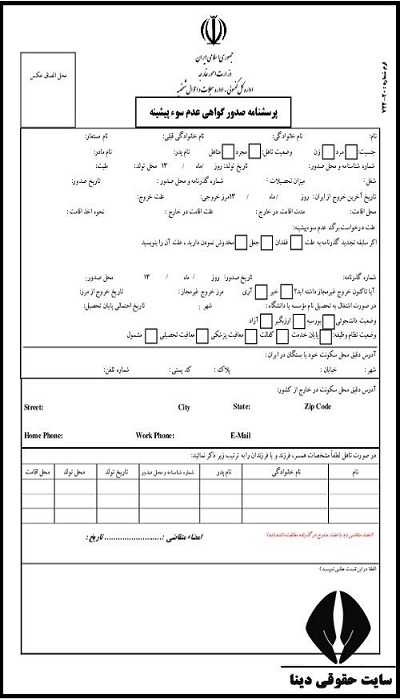 جمهوری اسلامی ایران
وزارت امور خارجه
اداره کل کنسولی - اداره سجلات و احوال شخصیه
فرم شماره ۲۰۰-۷۲۲
محل الصاق عکس
پرسشنامه صدور گواهی عدم سوء پیشینه
نام: نام خانوادگی: نام خانوادگی قبلی: نام مستعار:
جنسیت: مرد زن وضعیت تاهل: مجرد متاهل نام پدر: نام مادر:
شماره شناسنامه و محل صدور: تاریخ تولد: روز /ماه / ۱۳ محل تولد: ملیت:
شغل: میزان تحصیلات: شماره گذرنامه و محل صدور: تاریخ صدور:
تاریخ آخرین خروج از ایران: روز /ماه / ۱۳ مرز خروجی: علت خروج:
محل اقامت: مدت اقامت در خارج: علت اقامت در خارج: نحوه اخذ اقامت:
علت درخواست برگه عدم سوءپیشینه:
اگر سابقه تجدید گذرنامه به علت فقدان جعل مخدوش نمودن دارید، علت آن را بنویسید
شماره گذرنامه: تاریخ صدور: روز /ماه / ۱۳ محل صدور:
آیا تاکنون خروج غیرمجاز داشته اید؟ خیر آری مرز خروج غیرمجاز: تاریخ خروج از مرز:
در صورت اشتغال به تحصیل نام مؤسسه یا دانشگاه: شهر: تاریخ احتمالی پایان تحصیل:
وضعیت دانشجوئی: بورسیه ارزبگیر آزاد
وضعیت نظام وظیفه: پایان خدمت کفالت معافیت پزشکی معافیت تحصیلی مشمول
آدرس دقیق محل سکونت خود یا بستگان در ایران:
شهر: خیابان: پلاک: کد پستی: شماره تلفن:
آدرس دقیق محل سکونت در خارج از کشور:
Street: City State: Zip Code
Home Phone: Work Phone: E-Mail
در صورت تاهل لطفاً مشخصات همسر، فرزند و یا فرزندان را به ترتیب زیر ذکر نمائید:
نام نام خانوادگی نام پدر شماره شناسنامه و محل صدور تاریخ تولد محل تولد محل اقامت
امضاء متقاضی: ........................ تاریخ:
(لطفا در این قسمت چیزی ننویسید)
سایت حقوقی دینا